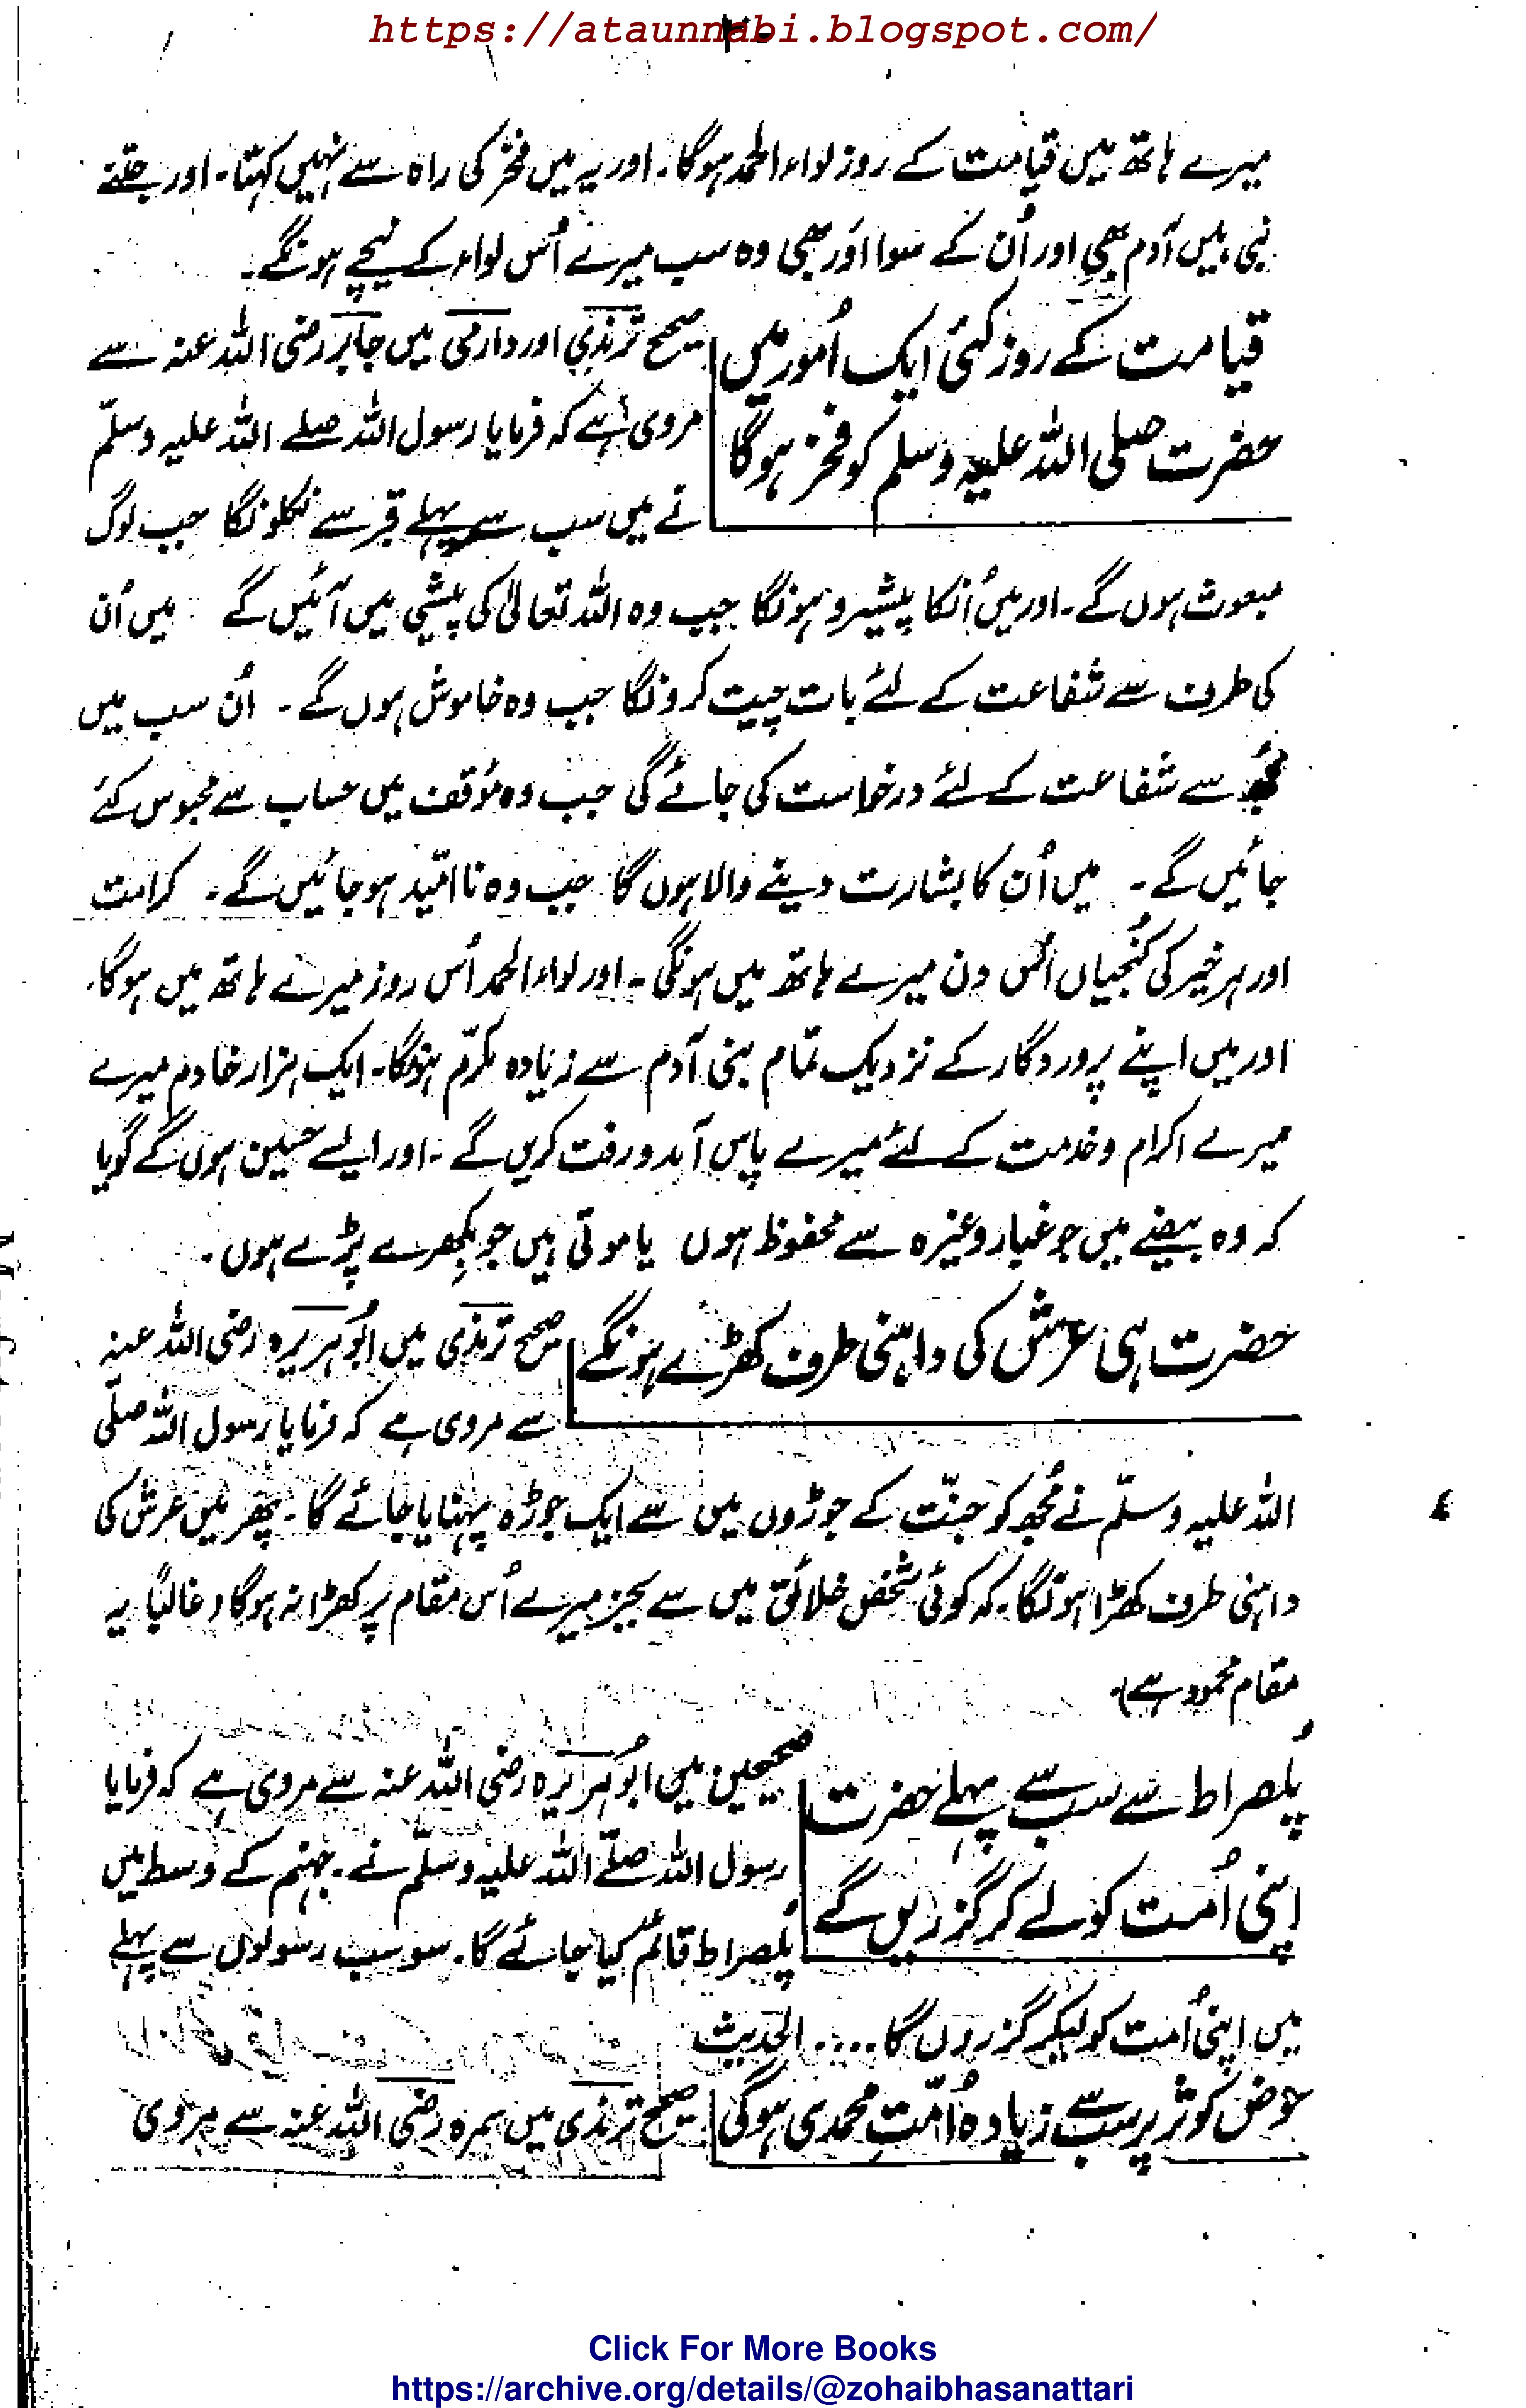 https://ataunnabi.blogspot.com/
میرے ہاتھ میں قیامت کے روز لواء الحمد ہوگا۔ اور یہ میں فخر کی راہ سے نہیں کہتا۔ اور جتنے
نبی ہیں آدم بھی اور اُن کے سوا اَور بھی وہ سب میرے اُس لواء کے نیچے ہونگے۔
قیامت کے روز کئی ایک اُمور میں
حضرت صلی اللہ علیہ وسلم کو فخر ہوگا
صحیح ترمذی اور دارمی میں جابر رضی اللہ عنہ سے
مروی ہے کہ فرمایا رسول اللہ صلے اللہ علیہ وسلّم
نے میں سب سے پہلے قبر سے نکلونگا جب لوگ
مبعوث ہوں گے۔ اور میں اُنکا پیشرو ہونگا جب وہ اللہ تعالیٰ کی پیشی میں آئیں گے میں اُن
کی طرف سے شفاعت کے لئے بات چیت کرونگا جب وہ خاموش ہوں گے۔ اُن سب میں
مجھ سے شفاعت کے لئے درخواست کی جائے گی جب وہ مَوقف میں حساب سے محبوس کئے
جائیں گے۔ میں اُن کا بشارت دینے والا ہوں گا جب وہ نا امّید ہو جائیں گے۔ کرامت
اور ہر خیر کی کُنجیاں اُس دن میرے ہاتھ میں ہونگی۔ اور لواء الحمد اُس روز میرے ہاتھ میں ہوگا۔
اور میں اپنے پروردگار کے نزدیک تمام بنی آدم سے زیادہ مکرّم ہونگا۔ ایک ہزار خادم میرے
میرے اکرام و خدمت کے لئے میرے پاس آمد و رفت کریں گے۔ اور ایسے حسین ہوں گے گویا
کہ وہ بیضے ہیں جو غبار وغیرہ سے محفوظ ہوں یا موتی ہیں جو بکھرے پڑے ہوں۔
حضرت ہی عرش کی داہنی طرف کھڑے ہونگے
صحیح ترمذی میں ابُو ہریرہ رضی اللہ عنہ
سے مروی ہے کہ فرمایا رسول اللہ صلّی
اللہ علیہ وسلّم نے مُجھ کو جنّت کے جوڑوں میں سے ایک جوڑہ پہنایا جائے گا۔ پھر میں عرش کی
داہنی طرف کھڑا ہونگا۔ کہ کوئی شخص خلائق میں سے بجز میرے اُس مقام پر کھڑا نہ ہوگا (غالباً یہ
مقام محمود ہے)۔
پُلصراط سے سب سے پہلے حضرت
اپنی اُمت کو لے کر گزریں گے
صحیحین میں ابُو ہریرہ رضی اللہ عنہ سے مروی ہے کہ فرمایا
رسول اللہ صلّے اللہ علیہ وسلّم نے۔ جہنم کے وسط میں
پُلصراط قائم کیا جائے گا۔ سو سب رسولوں سے پہلے
میں اپنی اُمت کو لیکر گزروں گا.... الحدیث
حوض کوثر پر سب سے زیادہ اُمّتِ محمدی ہوگی
صحیح ترمذی میں سمرہ رضی اللہ عنہ سے مروی
Click For More Books
https://archive.org/details/@zohaibhasanattari